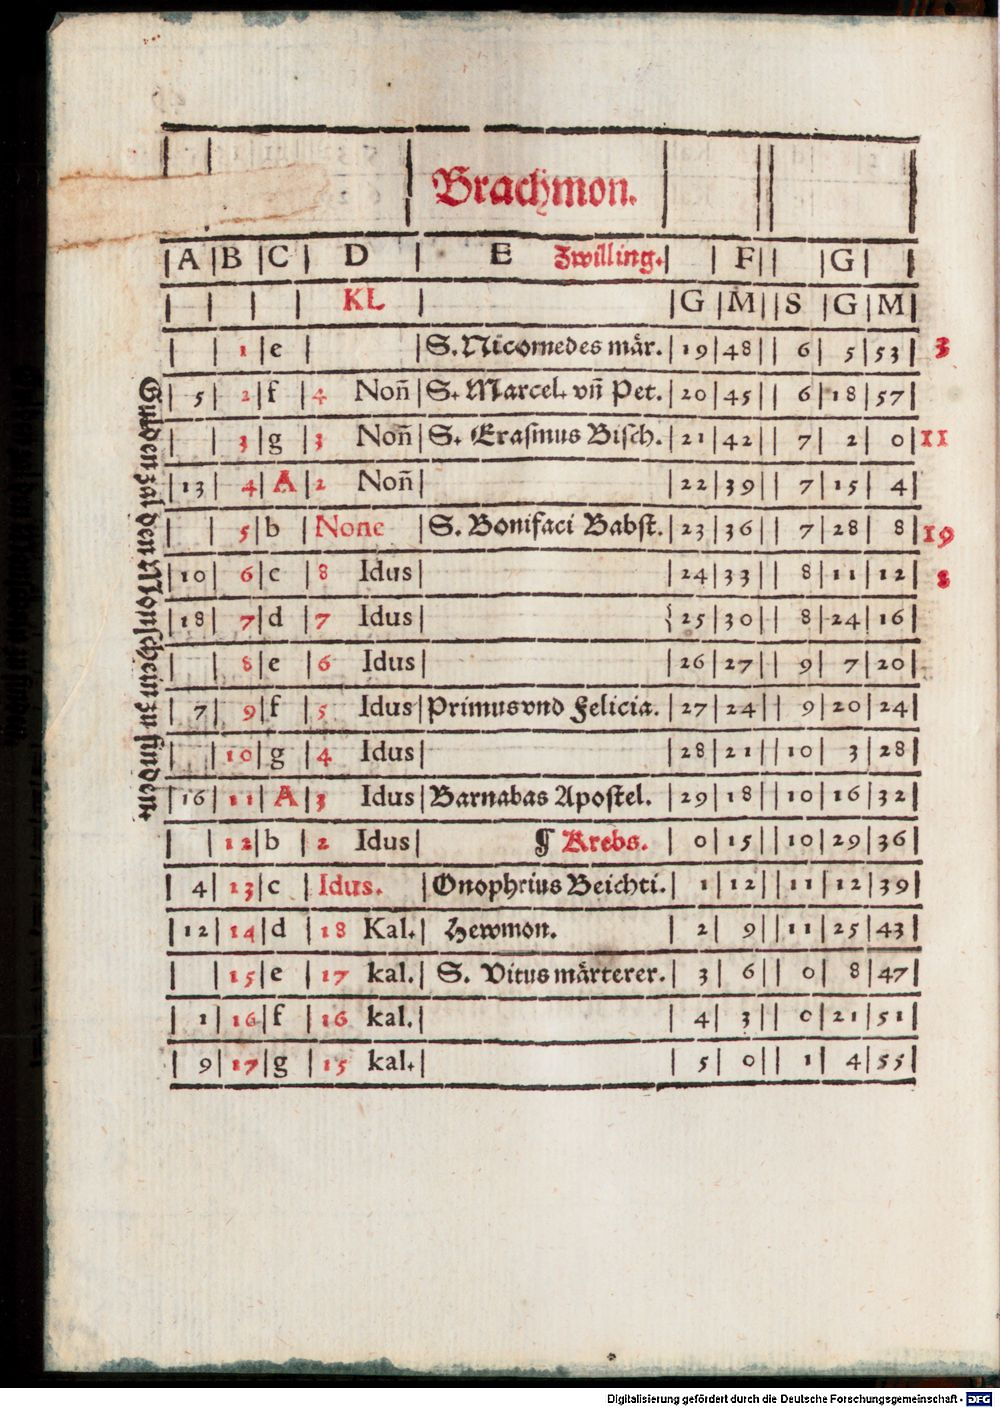 Brachmon.
A B C D E Zwilling. F G
KL G M S G M
1 e S. Nicomedes mår. 19 48 6 5 53 3
5 2 f 4 Non̄ S. Marcel. vn̄ Pet. 20 45 6 18 57
3 g 3 Non̄ S. Erasmus Bisch. 21 42 7 2 0 11
13 4 A 2 Non̄ 22 39 7 15 4
5 b None S. Bonifaci Babst. 23 36 7 28 8 19
10 6 c 8 Idus 24 33 8 11 12 8
18 7 d 7 Idus 25 30 8 24 16
8 e 6 Idus 26 27 9 7 20
7 9 f 5 Idus Primus vnd Felicia. 27 24 9 20 24
10 g 4 Idus 28 21 10 3 28
16 11 A 3 Idus Barnabas Apostel. 29 18 10 16 32
12 b 2 Idus ¶ Krebs. 0 15 10 29 36
4 13 c Idus. Onophrius Beichti. 1 12 11 12 39
12 14 d 18 Kal. Hewmon. 2 9 11 25 43
15 e 17 kal. S. Vitus mårterer. 3 6 0 8 47
1 16 f 16 kal. 4 3 0 21 51
9 17 g 15 kal. 5 0 1 4 55
Gulden zal den Monschein zu finden.
Digitalisierung gefördert durch die Deutsche Forschungsgemeinschaft - DFG